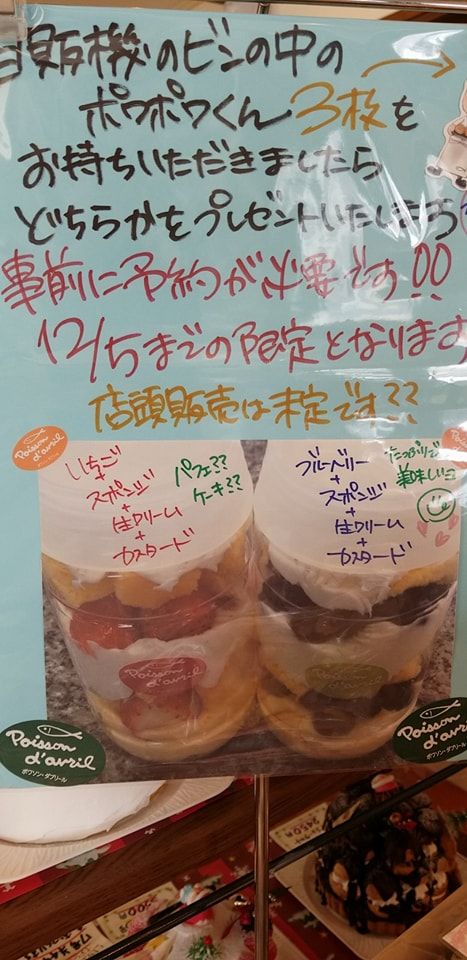 自販機のビンの中の
ポワポワくん3枚を
お持ちいただきましたら
どちらかをプレゼントいたします
事前に予約が必要です!!
12/5までの限定となります
店頭販売は未定です??
Poisson d'avril
いちご
+
スポンジ
+
生クリーム
+
カスタード
パフェ??
ケーキ??
ブルーベリー
+
スポンジ
+
生クリーム
+
カスタード
たっぷりで
美味しいヨ
Poisson d'avril
Poisson d'avril
Poisson d'avril
ポワソン・ダブリール
Poisson d'avril
ポワソン・ダブリール
2450円